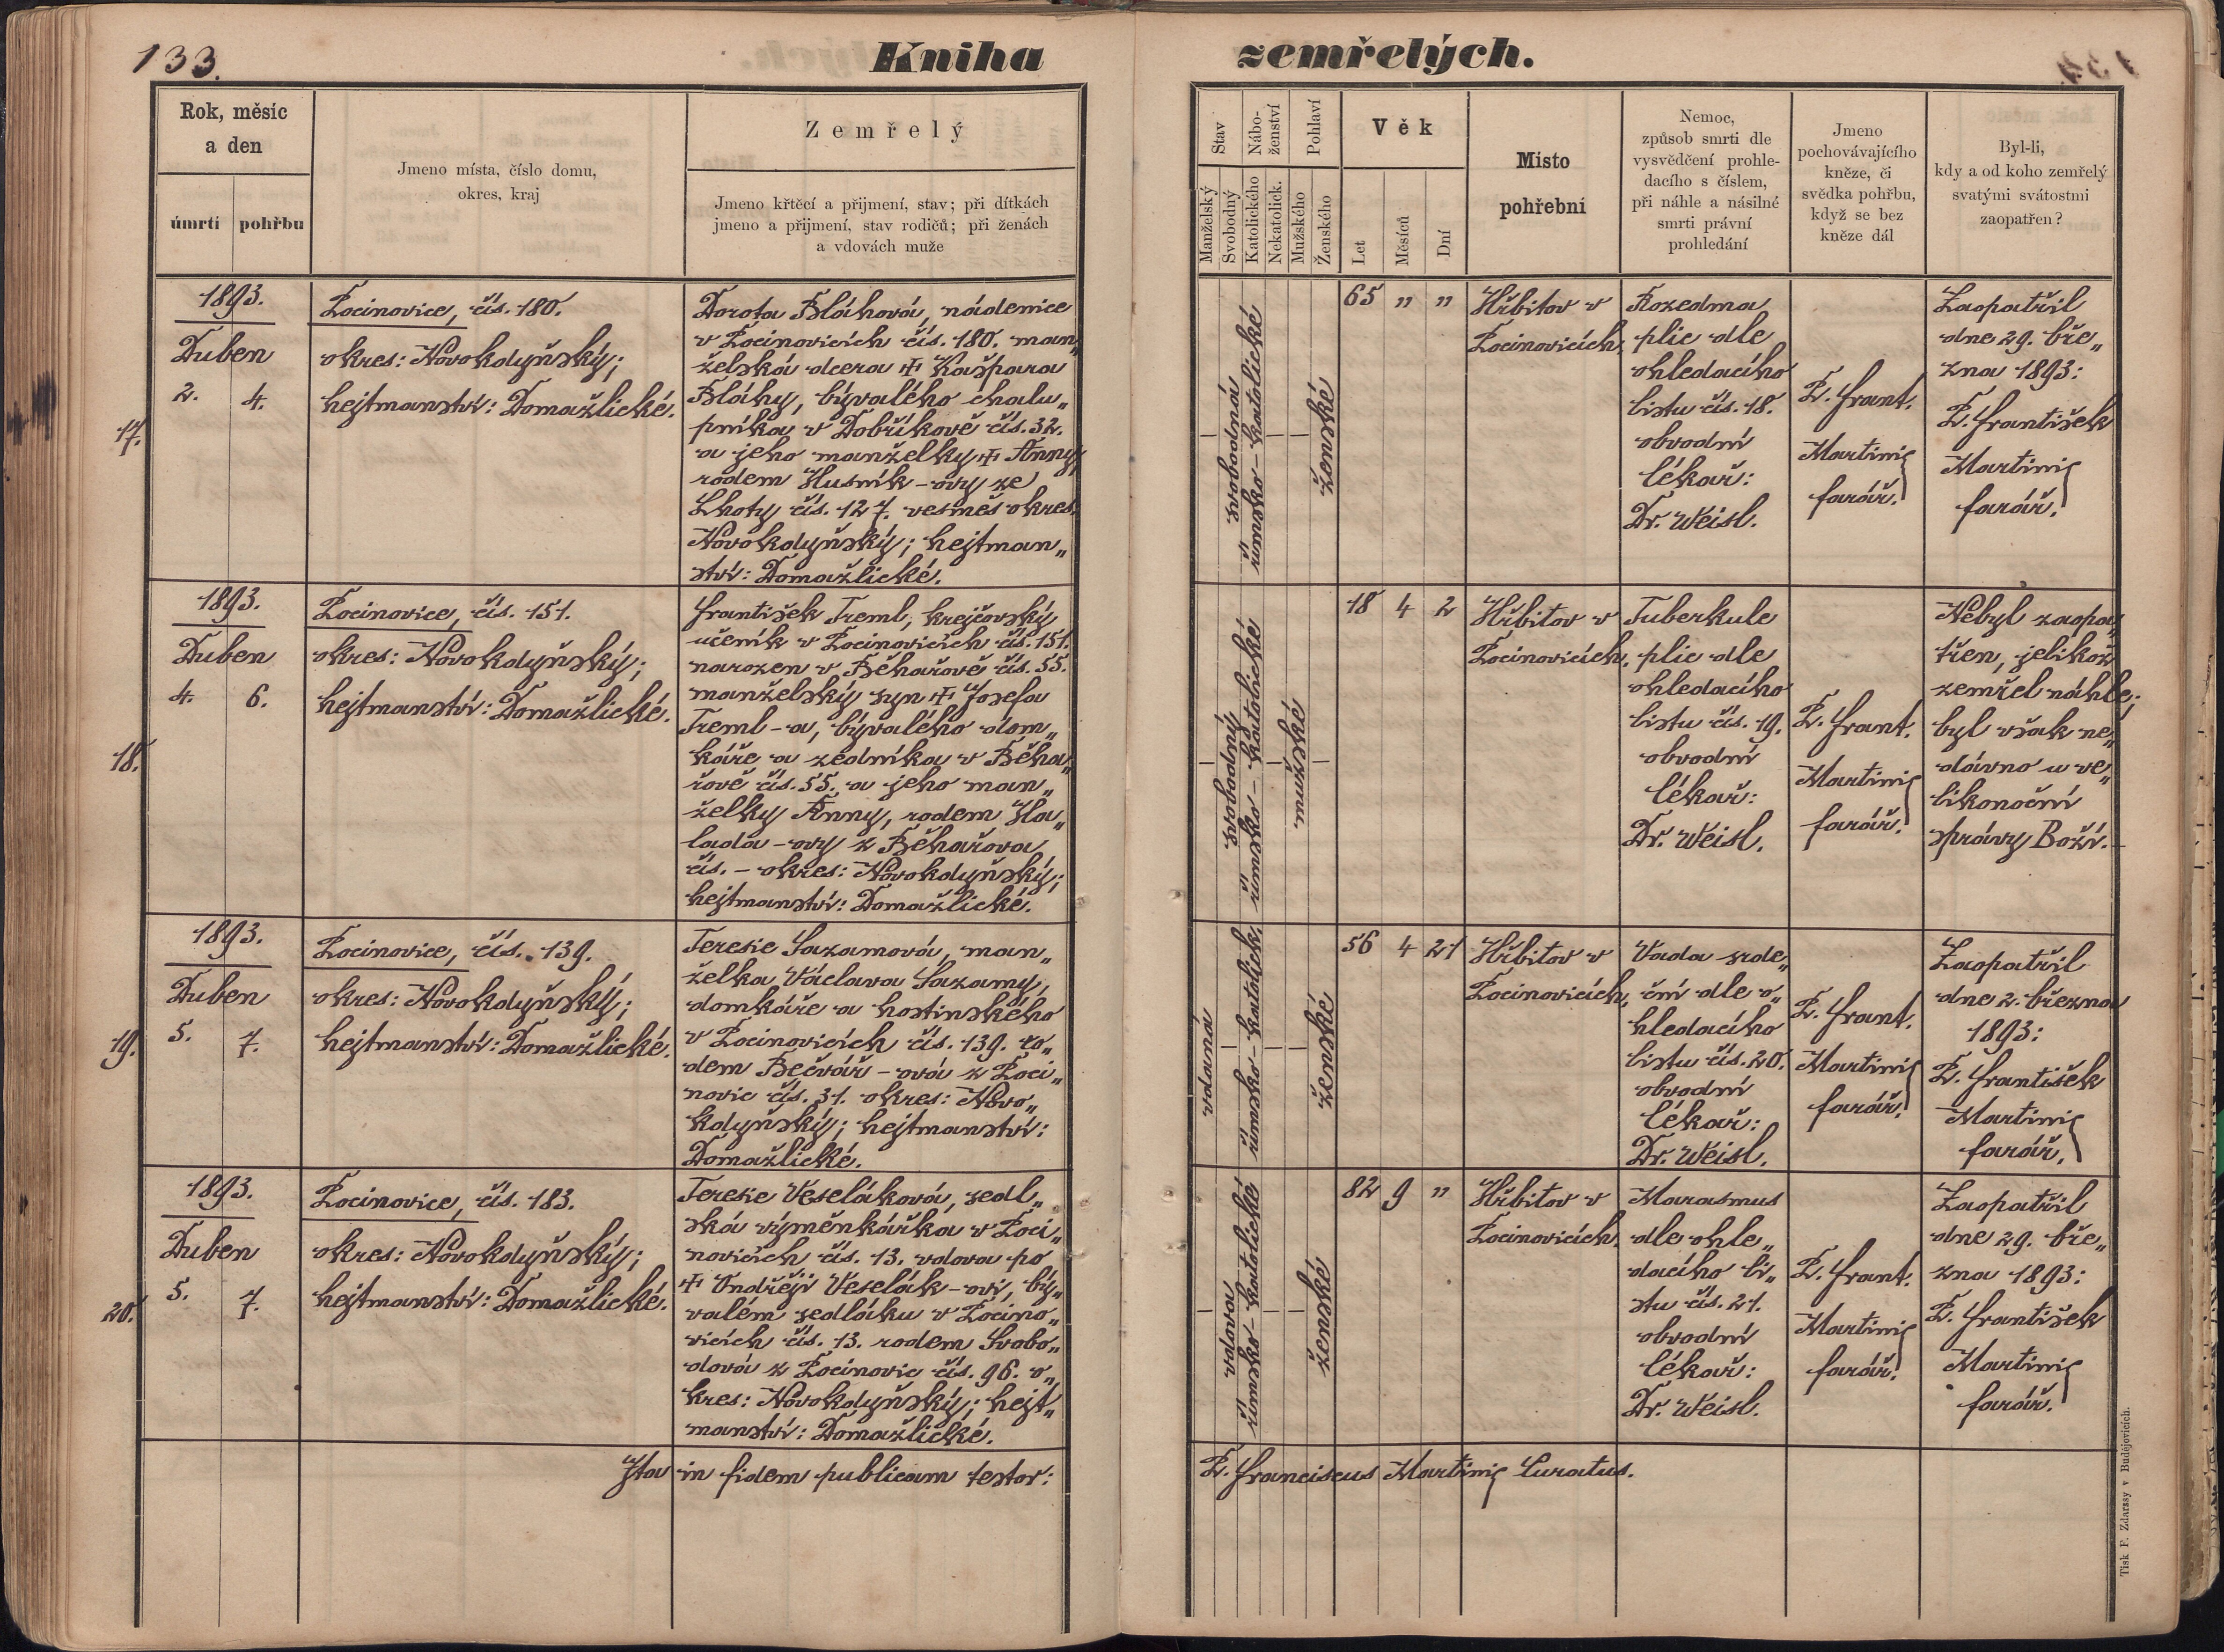 133.
Kniha
zemřelých.
Rok, měsíc
a den
úmrtí
pohřbu
Jmeno místa, číslo domu,
okres, kraj
Zemřelý
Jmeno křtěcí a přijmení, stav; při dítkách
jmeno a přijmení, stav rodičů; při ženách
a vdovách muže
Stav
Nábo-
ženství
Pohlaví
Manželský
Svobodný
Katolického
Nekatolick.
Mužského
Ženského
Věk
Let
Měsíců
Dní
Místo
pohřební
Nemoc,
způsob smrti dle
vysvědčení prohle-
dacího s číslem,
při náhle a násilné
smrti právní
prohledání
Jmeno
pochovávajícího
kněze, či
svědka pohřbu,
když se bez
kněze dál
Byl-li,
kdy a od koho zemřelý
svatými svátostmi
zaopatřen?
17.
1893.
Duben
2. 4.
Locinovice, čís. 180.
okres: Novokdyňský;
hejtmanství: Domažlické.
Dorota Bláhová, nádenice
v Locinovicích čís. 180. man„
želská dcera ☩ Kašpara
Bláhy, bývalého chalu„
pníka v Dobříkově čís. 32.
a jeho manželky ☩ Anny,
rodem Husník-ovy ze
Lhoty čís. 127. vesměs okres.
Novokdyňský; hejtman„
ství: Domažlické.
svobodná
římsko-katolické
ženské
65 „ „
Hřbitov v
Locinovicích.
Rozedma
plic dle
ohledacího
listu čís. 18.
obvodní
lékař:
Dr. Weisl.
P. Frant.
Martinij
farář.
Zaopatřil
dne 29. bře„
zna 1893:
P. František
Martinij
farář.
18.
1893.
Duben
4. 6.
Locinovice, čís. 151.
okres: Novokdyňský;
hejtmanství: Domažlické.
František Treml, krejčovský
učeník v Locinovicích čís. 151.
narozen v Běhařově čís. 55.
manželský syn ☩ Josefa
Treml-a, bývalého dom„
káře a zedníka v Běha„
řově čís. 55. a jeho man„
želky Anny, rodem Ha„
lada-ovy z Běhařova
čís. - okres: Novokdyňský;
hejtmanství: Domažlické.
svobodný
římsko-katolické
mužské
18 4 2
Hřbitov v
Locinovicích.
Tuberkule
plic dle
ohledacího
listu čís. 19.
obvodní
lékař:
Dr. Weisl.
P. Frant.
Martinij
farář.
Nebyl zaopa„
třen, jelikož
zemřel náhle;
byl však ne„
dávno u ve„
likonoční
správy Boží.
19.
1893.
Duben
5. 7.
Locinovice, čís. 139.
okres: Novokdyňský;
hejtmanství: Domažlické.
Teresie Sazamová, man„
želka Václava Sazamy,
domkáře a hostinského
v Locinovicích čís. 139. ro„
dem Bečvář-ová z Loci„
novic čís. 31. okres: Novo„
kdyňský; hejtmanství:
Domažlické.
vdaná
římsko-katolick.
ženské
56 4 21
Hřbitov v
Locinovicích.
Vada srde„
ční dle o„
hledacího
listu čís. 20.
obvodní
lékař:
Dr. Weisl.
P. Frant.
Martinij
farář.
Zaopatřil
dne 2. března
1893:
P. František
Martinij
farář.
20.
1893.
Duben
5. 7.
Locinovice, čís. 183.
okres: Novokdyňský;
hejtmanství: Domažlické.
Teresie Veseláková, sedl„
ská výměnkářka v Loci„
novicích čís. 13. vdova po
☩ Ondřeji Veselák-ovi, bý„
valém sedláku v Locino„
vicích čís. 13. rodem Svobo„
dová z Locinovic čís. 96. o„
kres: Novokdyňský; hejt„
manství: Domažlické.
vdova
římsko-katolické
ženské
82 9 „
Hřbitov v
Locinovicích.
Marasmus
dle ohle„
dacího li„
stu čís. 21.
obvodní
lékař:
Dr. Weisl.
P. Frant.
Martinij
farář.
Zaopatřil
dne 29. bře„
zna 1893:
P. František
Martinij
farář.
Ita in fidem publicam testor:
P. Franciscus Martinij Curatus.
Tisk F. Zdarssy v Budějovicích.